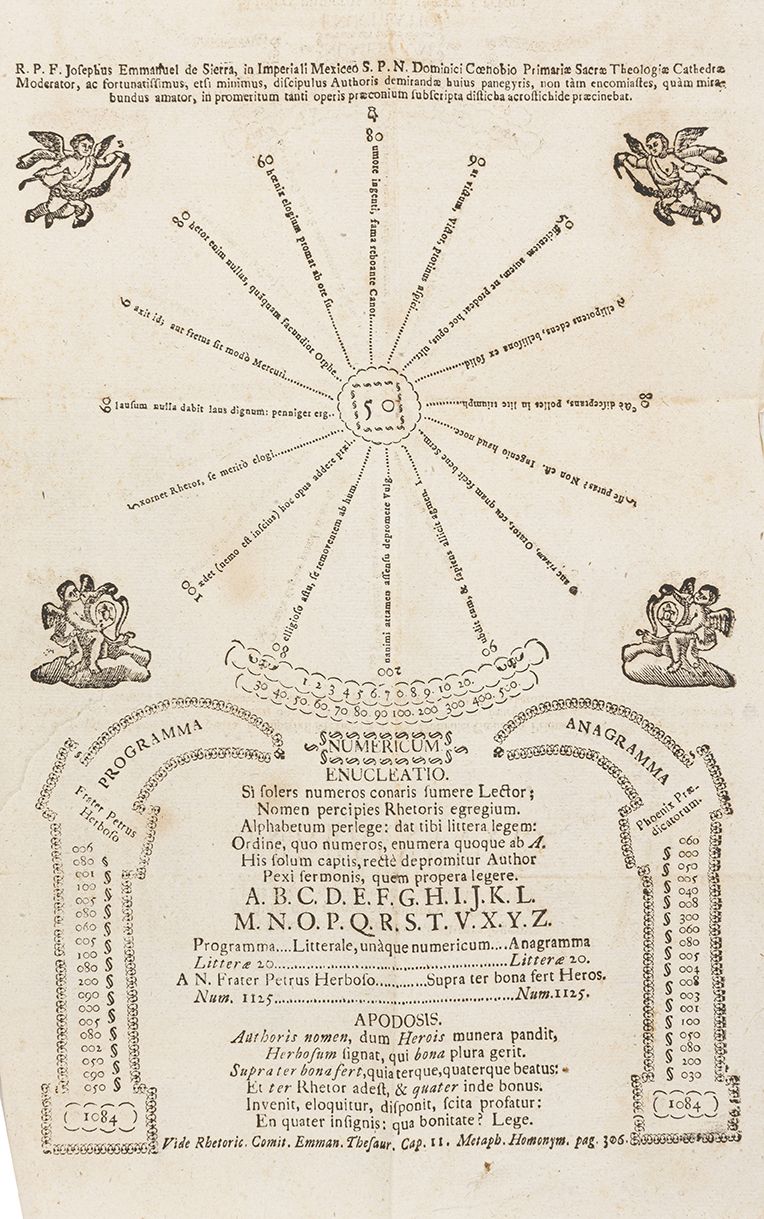 R. P. F. Joſephus Emmanuel de Sierra, in Imperiali Mexiceo S. P. N. Dominici Cœnobio Primariæ Sacræ Theologiæ Cathedræ
Moderator, ac fortunatiſſimus, etſi minimus, diſcipulus Authoris demirandæ huius panegyris, non tàm encomiaſtes, quàm mira-
bundus amator, in promeritum tanti operis præconium ſubſcripta diſticha acroſtichide præcinebat.
80 umore ingenti, fama reboante Canor
90 at viſum Viſor, protinus aſpici
50 fficientem autem, ne prodeat hoc opus, ulti
ellipotens edens, beliſona ex ſolid
80 diſceptans, polles in lite triumph
5 ſſe putas? Non eſt. Ingenio haud noce
Orator, ceu quam fecit bene ſerm
90 ubdit eam, & ſapiens allicit agmen. I.
200 nanimi attamen aſſenſu depromere Vulg.
80 elligioſo aſtu, ſe removentem ab hum.
100 ædet (nemo eſt inſcius) hoc opus addere pixi.
5 xornet Rhetor, ſe meritò elogi
60 lauſum nulla dabit laus dignum: penniger erg..
9 axit id; aut fretus ſit modò Mercuri
80 hetor enim nullus, quãquam facundior Orphe
60 hœnix elogium promat ab ore ſu
50
1 2 3 4 5 6 7 0 8 9 10 20.
30 40. 50. 60. 70. 80. 90 100. 200 300 400. 500.
PROGRAMMA
Frater Petrus
Herboſo
006
080
001
100
005
080
060
005
100
080
200
090
000
005
080
002
050
090
050
1084
NUMERICUM
ENUCLEATIO.
Si ſolers numeros conaris ſumere Lector;
Nomen percipies Rhetoris egregium.
Alphabetum perlege: dat tibi littera legem:
Ordine, quo numeros, enumera quoque ab A.
His ſolum captis, rectè depromitur Author
Pexi ſermonis, quem propera legere.
A. B. C. D. E. F. G. H. I. J. K. L.
M. N. O. P. Q. R. S. T. V. X. Y. Z.
Programma....Litterale, unàque numericum....Anagramma
Litteræ 20..........Litteræ 20.
A N. Frater Petrus Herboſo...........Supra ter bona fert Heros.
Num. 1125..........Num. 1125.
APODOSIS.
Authoris nomen, dum Herois munera pandit,
Herboſum ſignat, qui bona plura gerit.
Supra ter bona fert, quia terque, quaterque beatus:
Et ter Rhetor adeſt, & quater inde bonus.
Invenit, eloquitur, diſponit, ſcita profatur:
En quater inſignis: qua bonitate? Lege.
ANAGRAMMA
Phoenix Præ-
dicatorum.
060
000
050
005
040
008
300
060
080
005
004
008
003
001
100
050
080
200
030
1084
Vide Rhetoric. Comit. Emman. Theſaur. Cap. 11. Metaph. Homonym. pag. 306.